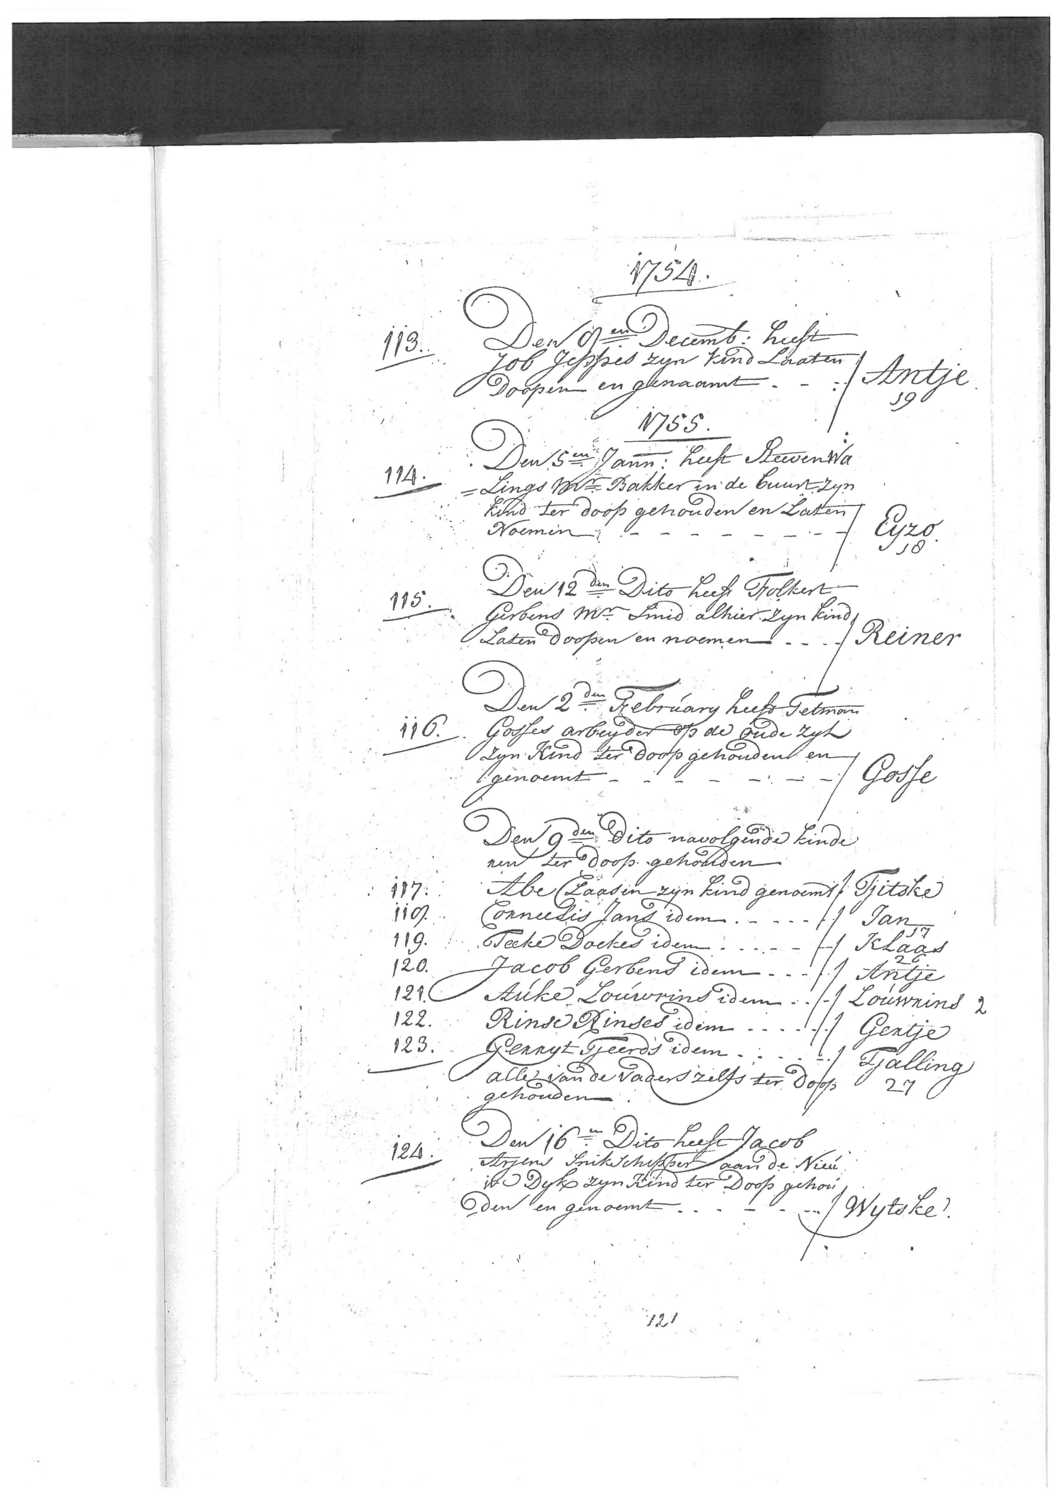 1754.
113. Den 8en Decemb: heeft
Job Jeppes zyn kind Laaten
Doopen en genaamt - - :/ Antje
19
1755.
114. Den 5en Jann: heeft Steven Wa
= Lings Mr Bakker in de buurt zyn
kind ter doop gehouden en Laten
Noemen - - - - - - - - / Eyzo.
18
115. Den 12den Dito heeft Folkert
Gerbens Mr Smid alhier zyn kind
Laten doopen en noemen - - - / Reiner
116. Den 2den February heeft Tetman
Gosses arbeyder op de oude zyl
zyn Kind ter doop gehouden en
genoemt - - - - - - - - / Gosse
Den 9den Dito navolgende kinde
ren ter doop gehouden
117. Abe Claasen zyn kind genoemt / Tjitske
118. Cornelis Jans idem . - - - - // Jan
17
119. Teeke Doekes idem . . . - - // Klaas
26
120. Jacob Gerbens idem - - - // Antje
121. Auke Louwrins idem . . // Louwrins 2
122. Rinse Rinses idem - - - - // Gertje
123. Gerryt Tjeerds idem . . . . - / Tjalling
27
alle van de vaders zelfs ter doop
gehouden
124. Den 16en Dito heeft Jacob
Arjens Snikschipper aan de Nieu
we Dyk zyn Kind ter Doop gehou
den en genoemt . . - - - - / Wytske.
121